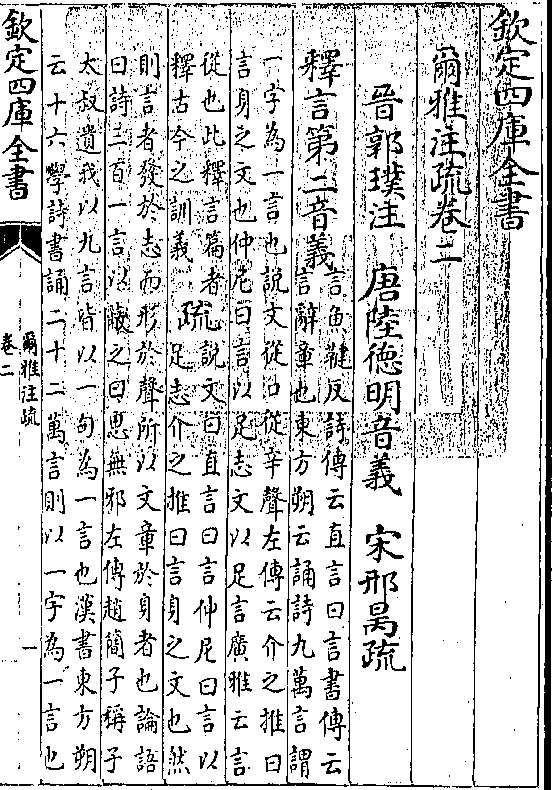 欽定四庫全書
爾雅注疏卷二
晉郭璞注 唐陸德明音義 宋邢昺疏
釋言第二音義言魚鞬反詩傳云直言曰言書傳云
言辭章也東方朔云誦詩九萬言謂
一字為一言也説文從口從䇂聲左傳云介之推曰
言身之文也仲尼曰言以足志文以足言廣雅云言
從也此釋言篇者
釋古今之訓義 疏説文曰直言曰言仲尼曰言以
足志介之推曰言身之文也然
則言者發於志而形於聲所以文章於身者也論語
曰詩三百一言以蔽之曰思無邪左傳趙簡子稱子
太叔遺我以九言皆以一句為一言也漢書東方朔
云十六學詩書誦二十二萬言則以一字為一言也
欽定四庫全書
爾雅注疏
卷二
一